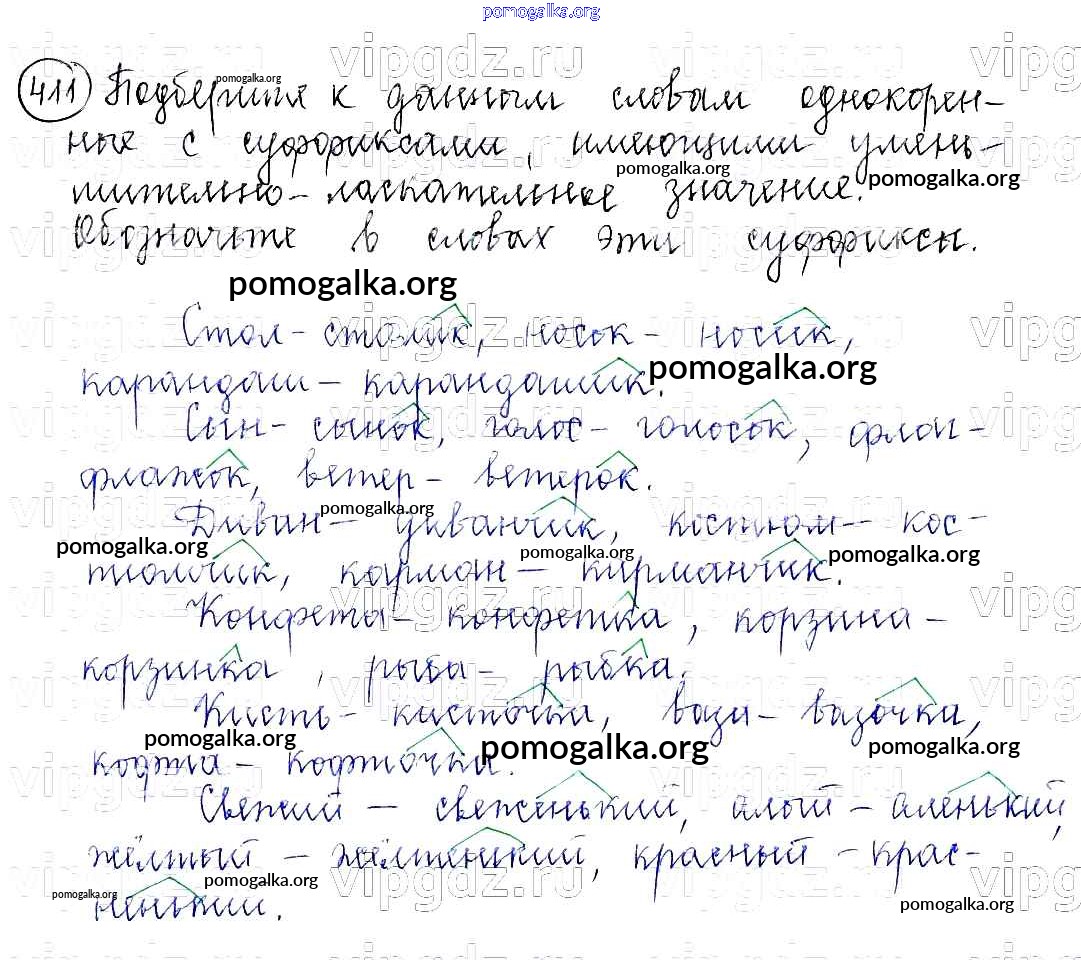 pomogalka.org
vipgdz.ru
411 Подберите к данным словам однокорен-
ные с суффиксами, имеющими умень-
шительно-ласкательное значение.
Обозначьте в словах эти суффиксы.
pomogalka.org
Стол - столик, носок - носик,
карандаш - карандашик.
Сын - сынок, голос - голосок, флаг -
флажок, ветер - ветерок.
Диван - диванчик, костюм - кос-
тюмчик, карман - карманчик.
Конфета - конфетка, корзина -
корзинка, рыба - рыбка.
Кисть - кисточка, ваза - вазочка,
кофта - кофточка.
Свежий - свеженький, алый - аленький,
жёлтый - жёлтенький, красный - крас-
ненький.